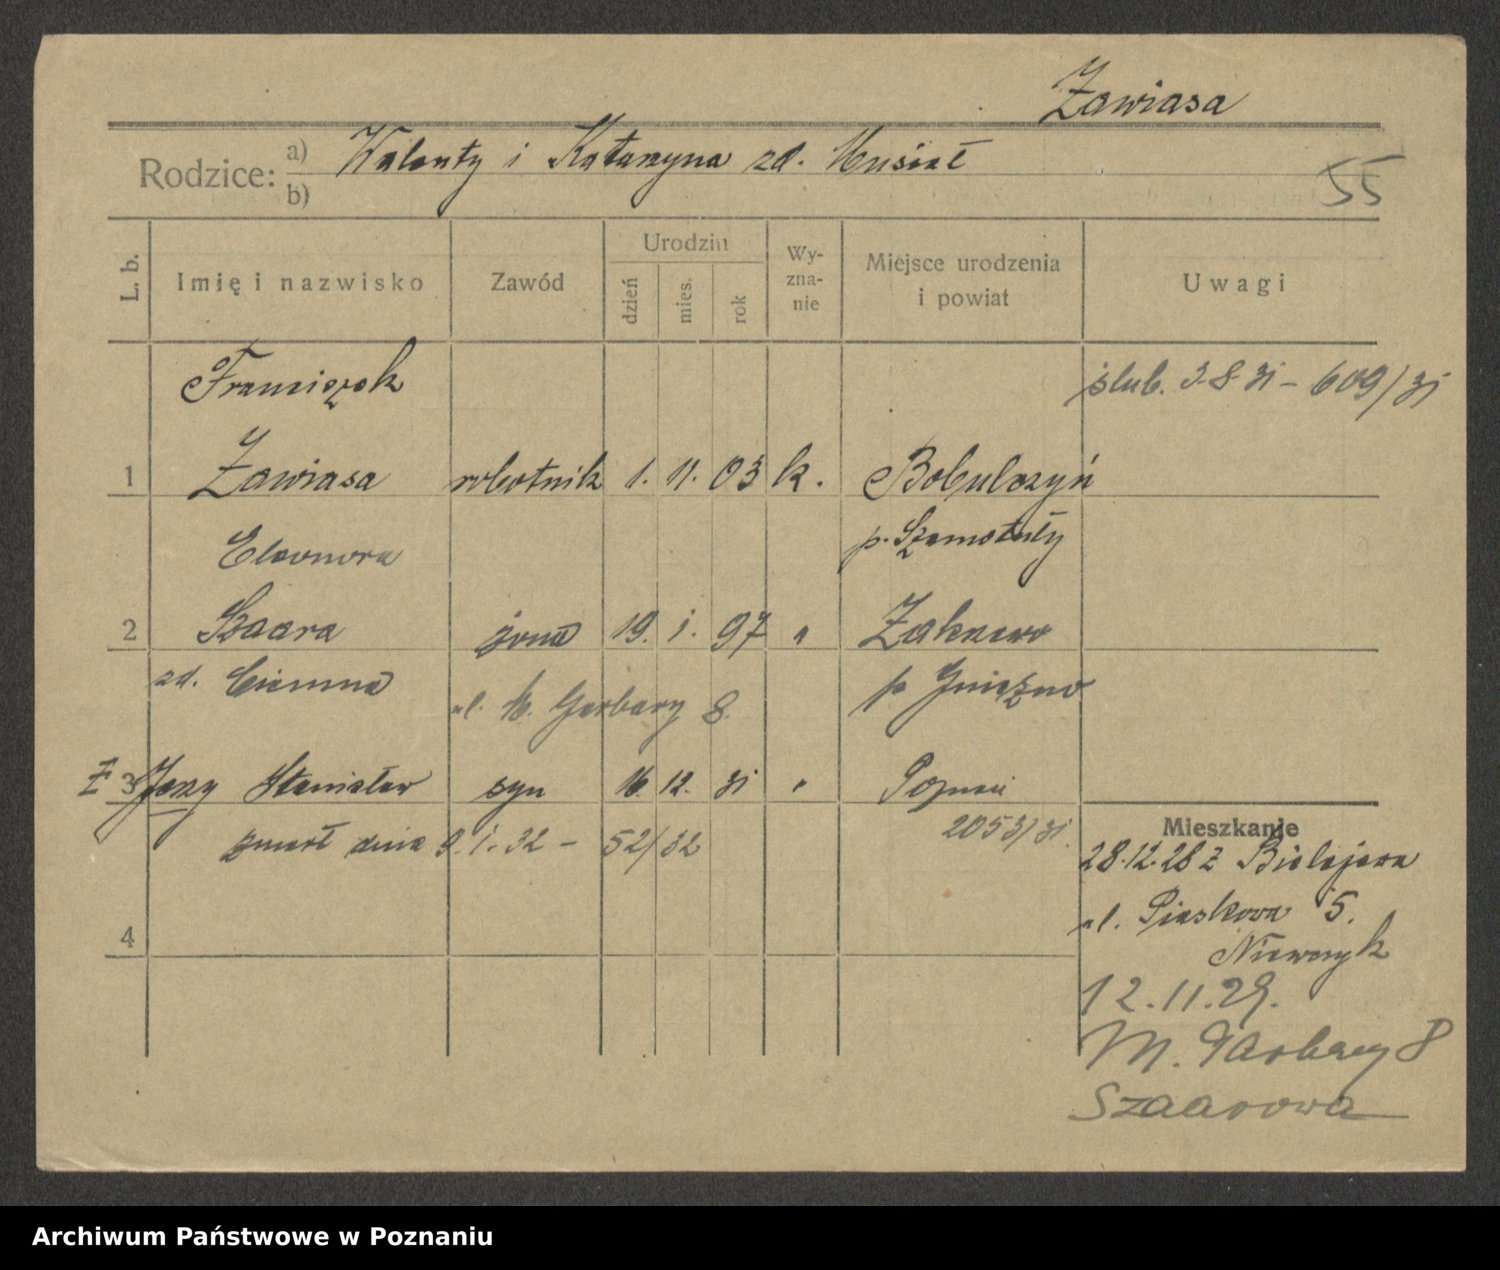 Zawiasa
Rodzice: a) Walenty i Katarzyna zd. Musiał
b)
55
L. b.
Imię i nazwisko
Zawód
Urodzin
dzień
mies.
rok
Wy-
zna-
nie
Miejsce urodzenia
i powiat
Uwagi
Franciszek
ślub. 3.8.31 – 609/31
1 Zawiasa robotnik 1. 11. 03 k. Bobulczyń
p. Szamotuły
Eleonora
2 Szaara żona 19. 1. 97 " Zakrzewo
zd. Ciemna
p Gniezno
ul. M. Garbary 8.
Ż 3 Jerzy Stanisław syn 16. 12. 31 " Poznań
zmarł dnia 9.1.32 – 52/32
2053/31.
Mieszkanie
28.12.28 z Bielejewa
ul. Piaskowa 5.
4
12.11.29.
M. Garbary 8
Szaarowa
Archiwum Państwowe w Poznaniu